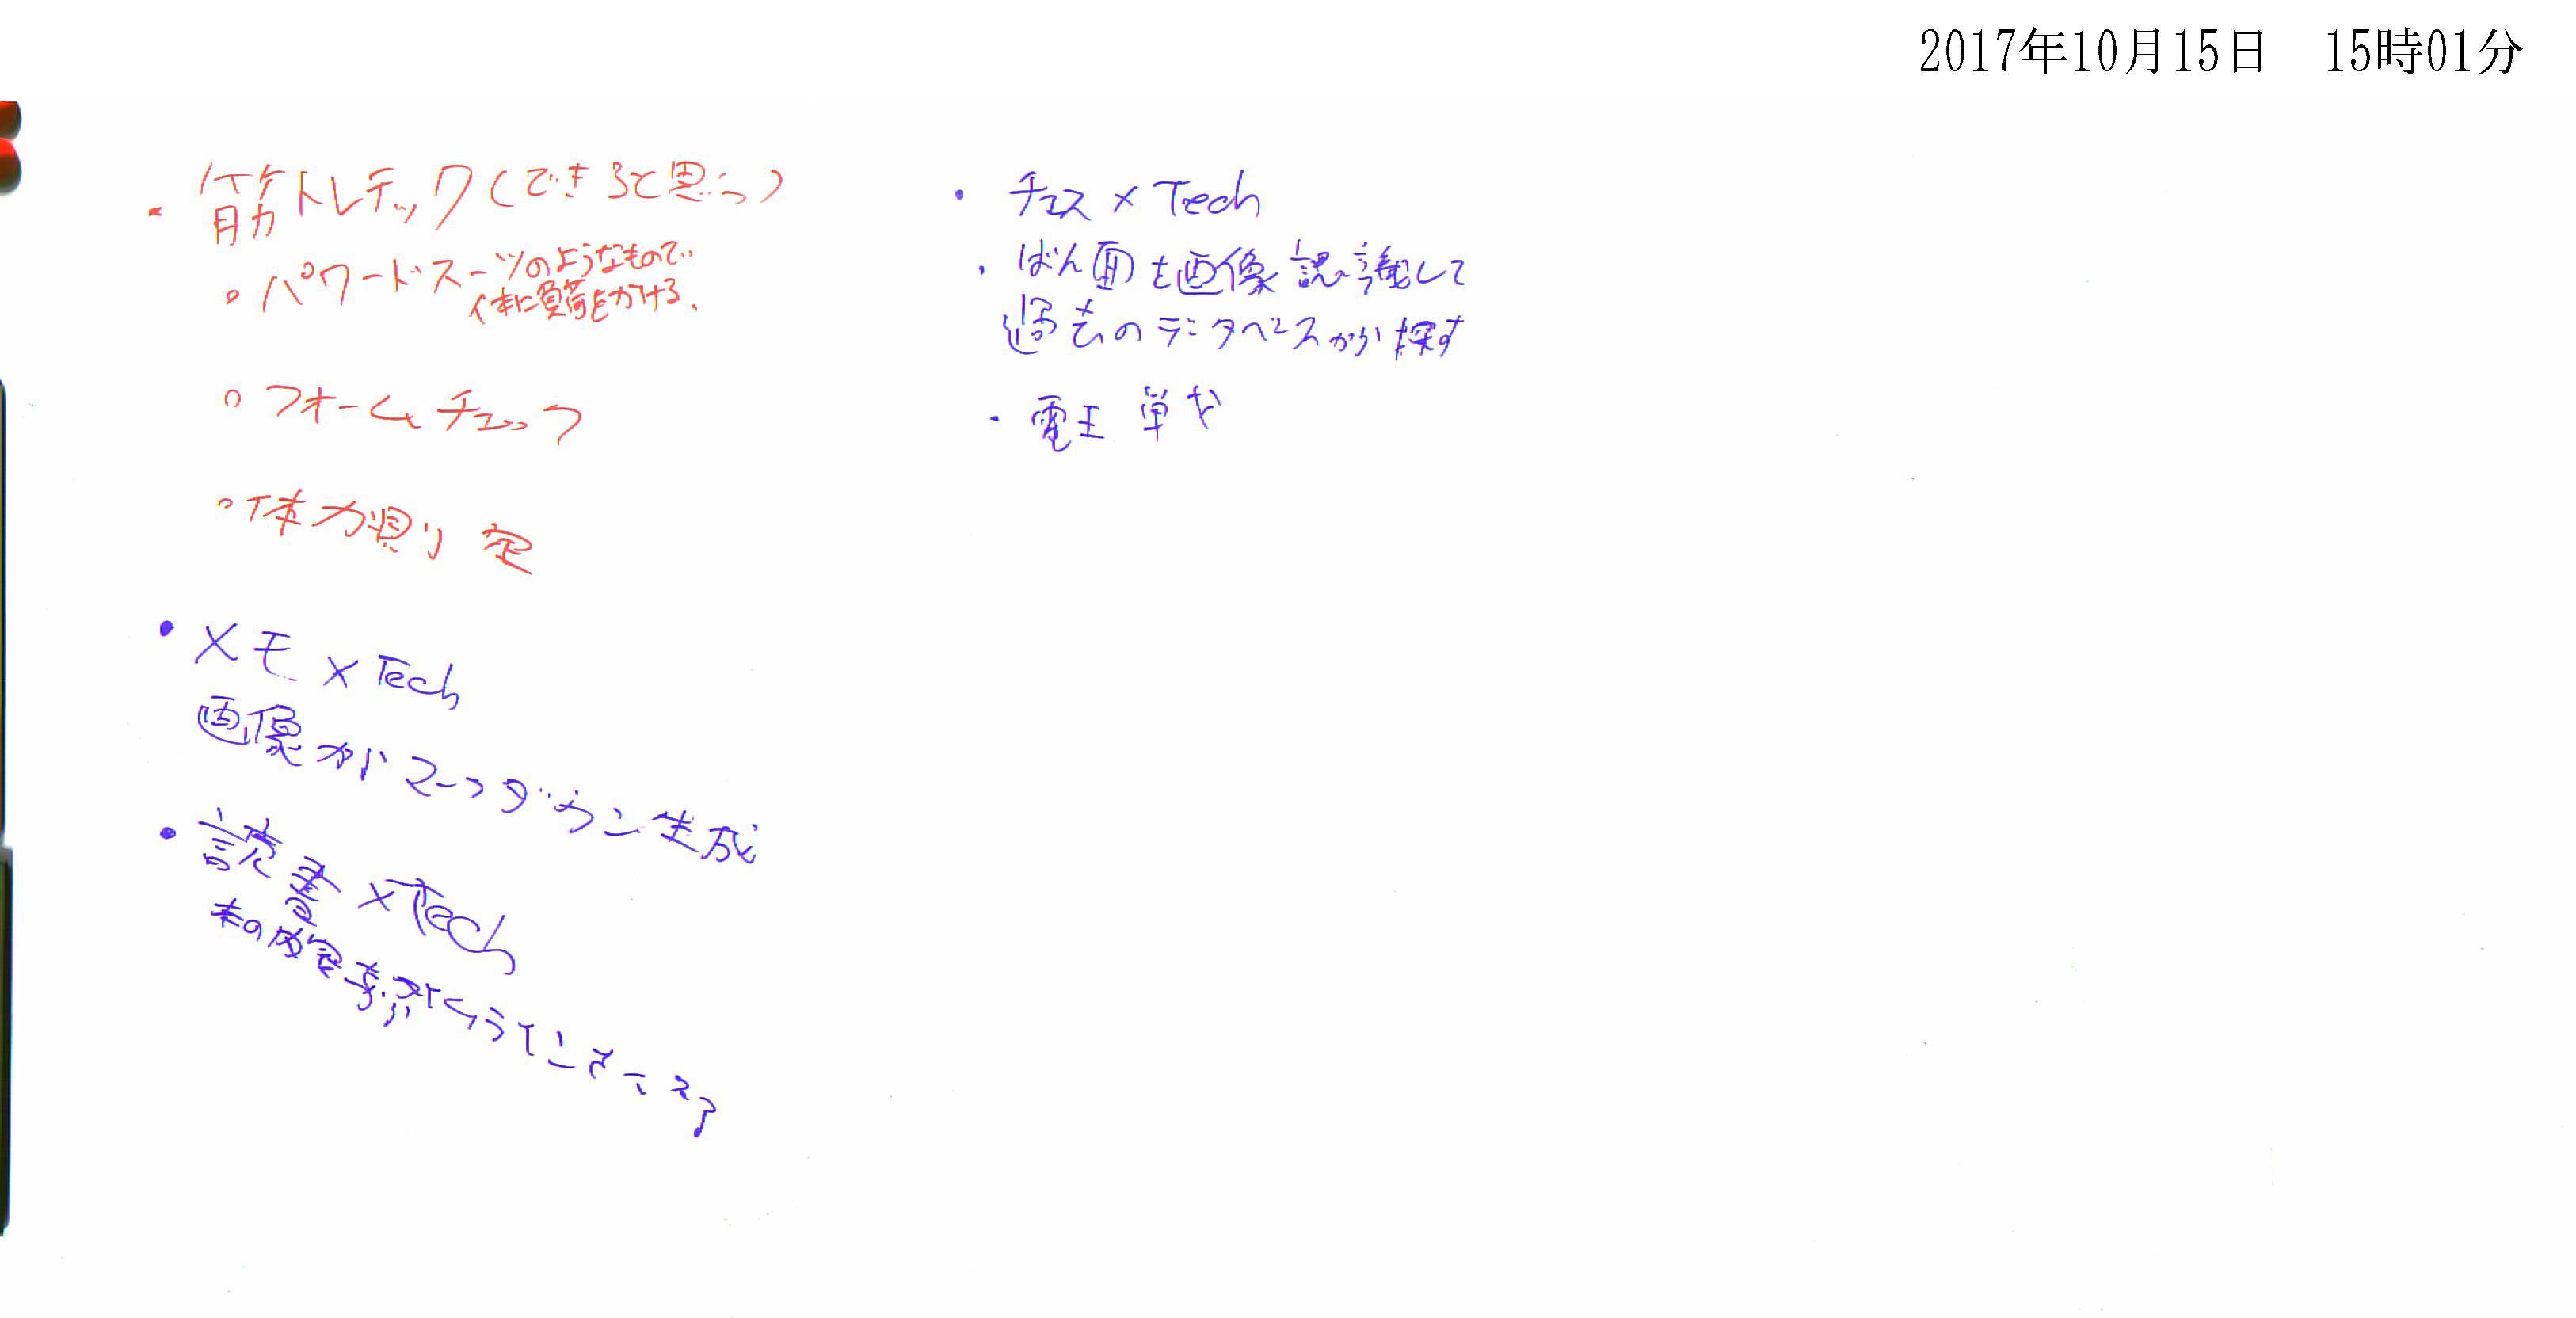 2017年10月15日 15時01分
・筋トレテック(できると思う)
○パワードスーツのようなもので、
体に負荷をかける、
○フォームチェック
○体力測定
・メモ×Tech
画像からマークダウン生成
・読書×Tech
本の内容
・チェス×Tech
・ばん面を画像認識して
過去のデータベースから探す
・電王戦